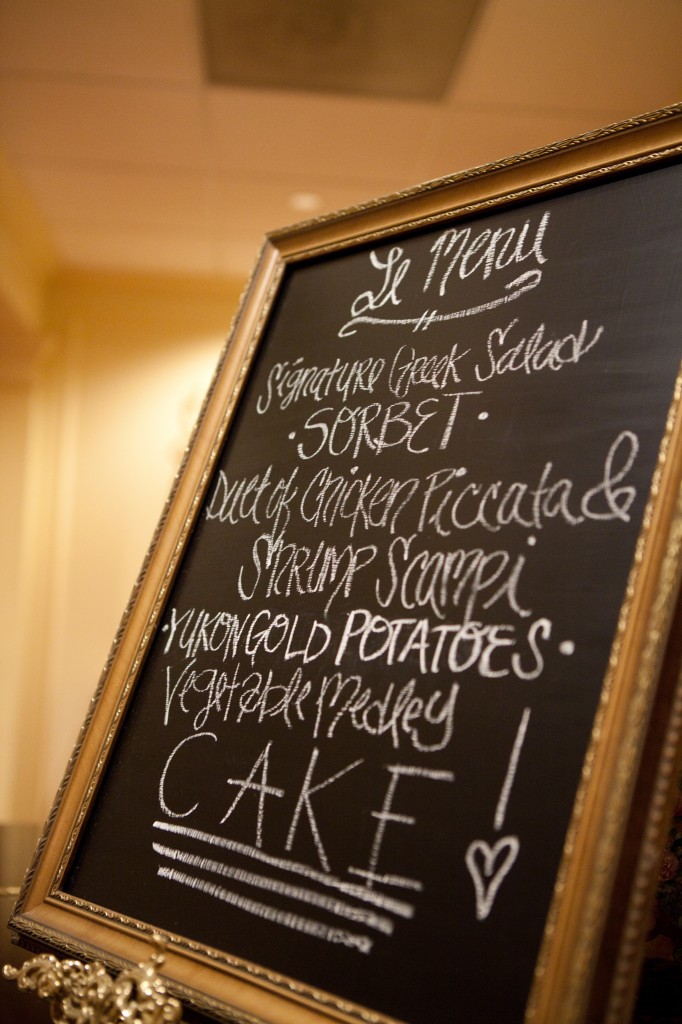 Le Menu
Signature Greek Salad
• SORBET •
Duet of Chicken Piccata &
Shrimp Scampi
• YUKON GOLD POTATOES •
Vegetable Medley
CAKE!